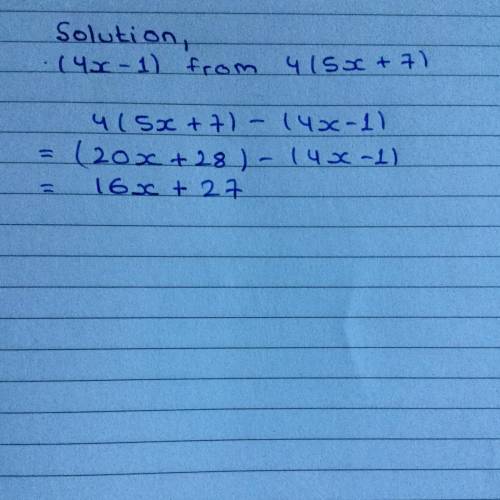 Solution,
(4x-1) from 4(5x+7)
4(5x+7)-(4x-1)
= (20x+28)-(4x-1)
= 16x+27